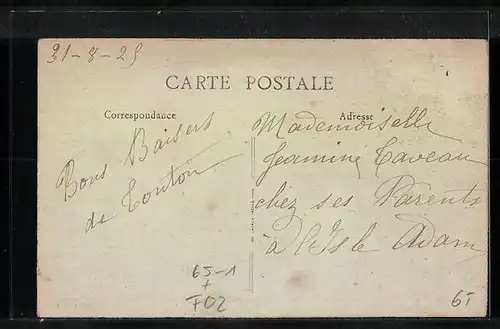 31-8-25
CARTE POSTALE
Correspondance
Adresse
Bons Baisers
de Tonton
Mademoiselle
Jeannine Caveau
chez ses Parents
à l'Isle Adam
65-1
+
F02
6-